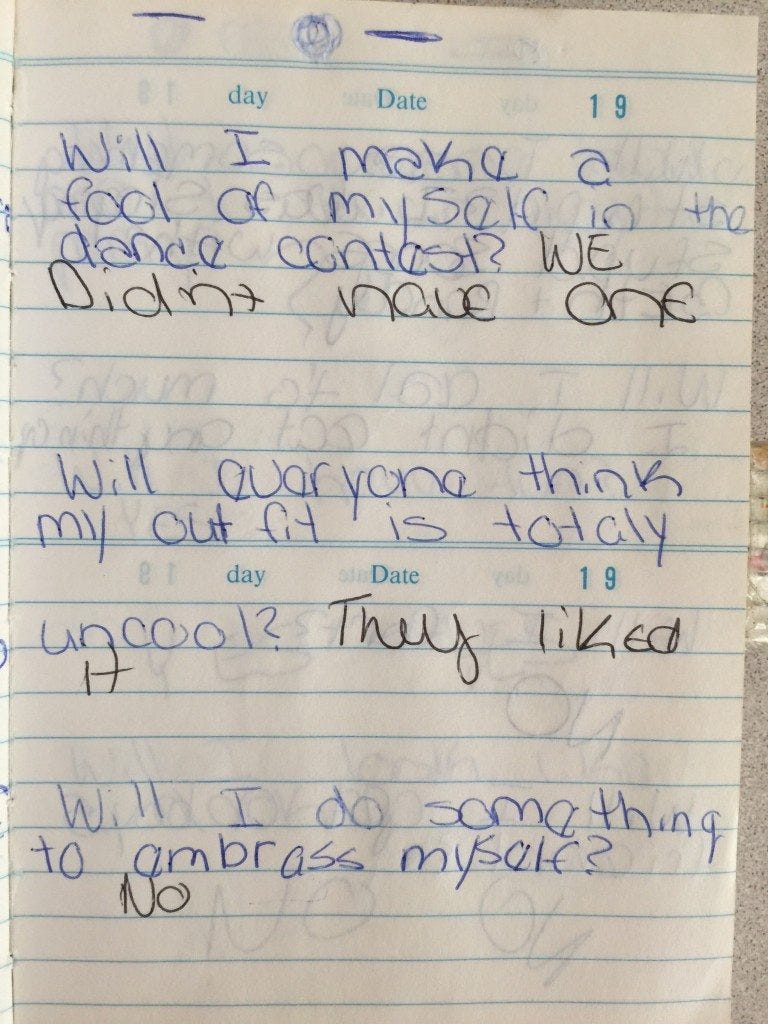 day Date 19
Will I make a
fool of myself in the
dance contest? WE
Didn't have one
Will everyone think
my out fit is totaly
day Date 19
uncool? They liked
it
Will I do something
to embrass myself?
No